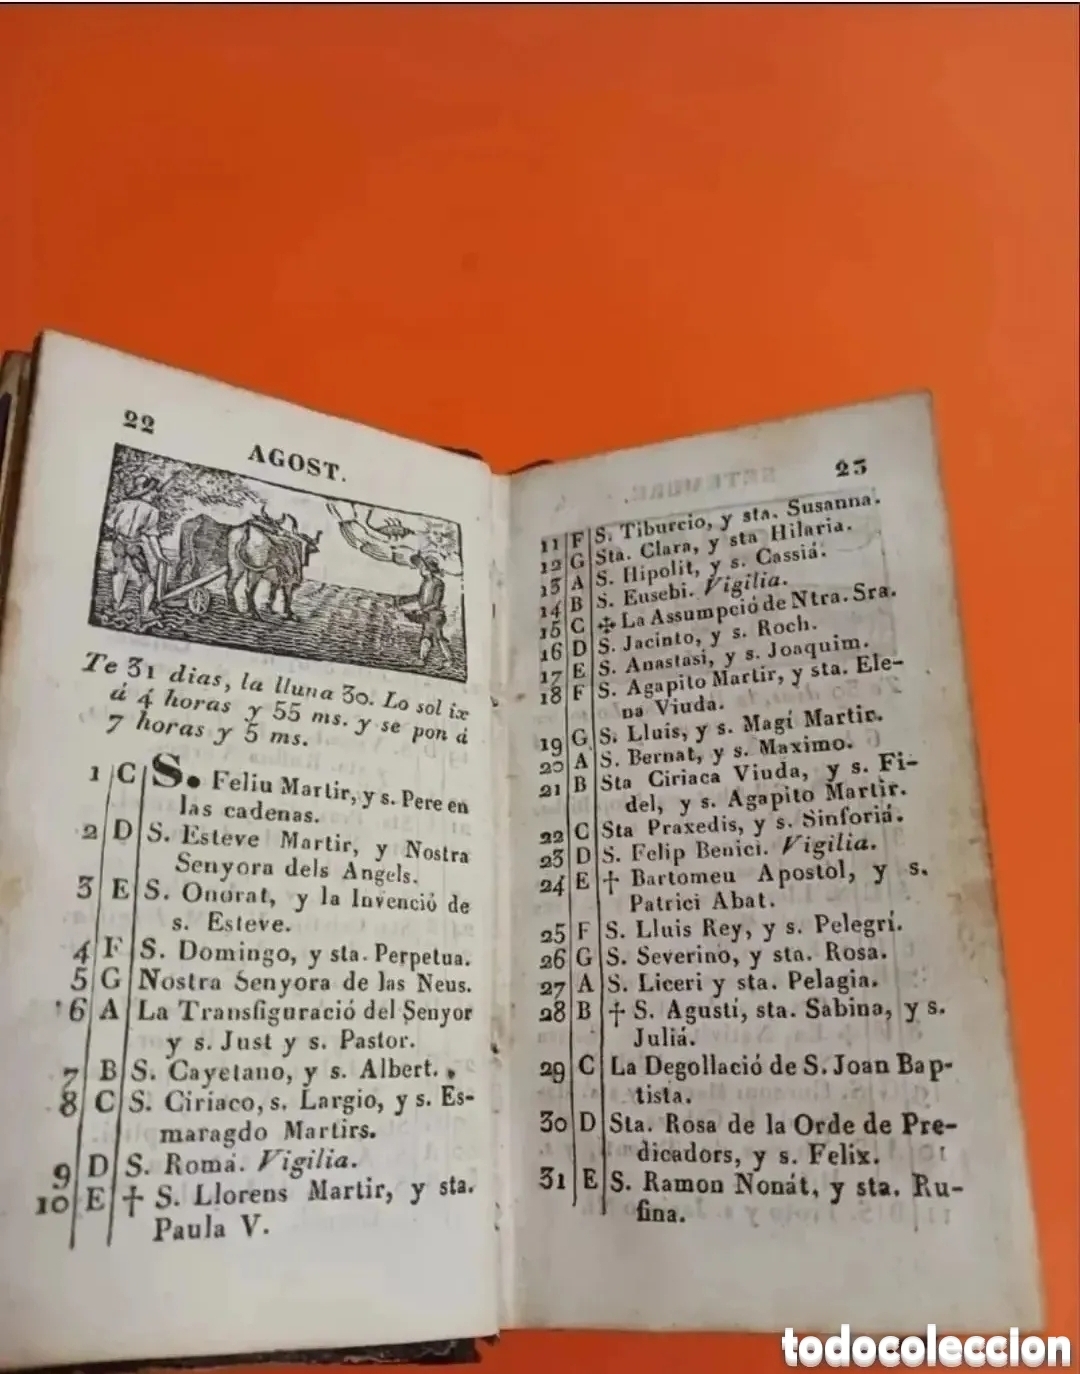 22
AGOST.
Te 31 dias, la lluna 30. Lo sol ix
á 4 horas y 55 ms. y se pon á
7 horas y 5 ms.
1 C S. Feliu Martir, y s. Pere en
las cadenas.
2 D S. Esteve Martir, y Nostra
Senyora dels Angels.
3 E S. Onorat, y la Invenció de
s. Esteve.
4 F S. Domingo, y sta. Perpetua.
5 G Nostra Senyora de las Neus.
6 A La Transfiguració del Senyor
y s. Just y s. Pastor.
7 B S. Cayetano, y s. Albert.
8 C S. Ciriaco, s. Largio, y s. Es-
maragdo Martirs.
9 D S. Romá. Vigilia.
10 E † S. Llorens Martir, y sta.
Paula V.
23
11 F S. Tiburcio, y sta. Susanna.
12 G Sta. Clara, y sta Hilaria.
13 A S. Hipolit, y s. Cassiá.
14 B S. Eusebi. Vigilia.
15 C ✠ La Assumpció de Ntra. Sra.
16 D S. Jacinto, y s. Roch.
17 E S. Anastasi, y s. Joaquim.
18 F S. Agapito Martir, y sta. Ele-
na Viuda.
19 G S. Lluis, y s. Magí Martir.
20 A S. Bernat, y s. Maximo.
21 B Sta Ciriaca Viuda, y s. Fi-
del, y s. Agapito Martir.
22 C Sta Praxedis, y s. Sinforiá.
23 D S. Felip Benici. Vigilia.
24 E † Bartomeu Apostol, y s.
Patrici Abat.
25 F S. Lluis Rey, y s. Pelegrí.
26 G S. Severino, y sta. Rosa.
27 A S. Liceri y sta. Pelagia.
28 B † S. Agustí, sta. Sabina, y s.
Juliá.
29 C La Degollació de S. Joan Bap-
tista.
30 D Sta. Rosa de la Orde de Pre-
dicadors, y s. Felix.
31 E S. Ramon Nonát, y sta. Ru-
fina.
todocoleccion